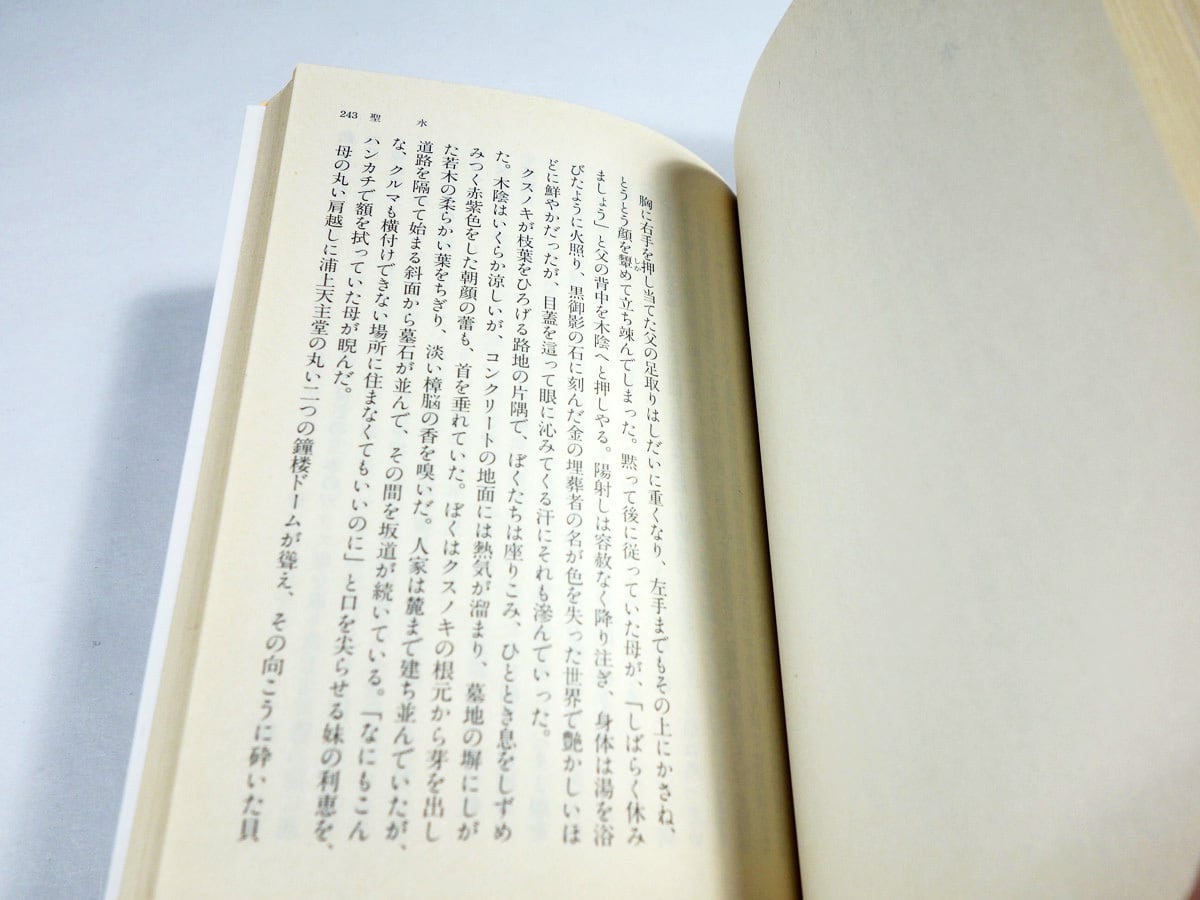 243 聖水
胸に右手を押し当てた父の足取りはしだいに重くなり、左手までもその上にかさね、
とうとう顔を顰めて立ち竦んでしまった。黙って後に従っていた母が、「しばらく休み
しか
ましょう」と父の背中を木陰へと押しやる。陽射しは容赦なく降り注ぎ、身体は湯を浴
びたように火照り、黒御影の石に刻んだ金の埋葬者の名が色を失った世界で艶かしいほ
どに鮮やかだったが、目蓋を這って眼に沁みてくる汗にそれも滲んでいった。
クスノキが枝葉をひろげる路地の片隅で、ぼくたちは座りこみ、ひととき息をしずめ
た。木陰はいくらか涼しいが、コンクリートの地面には熱気が溜まり、墓地の塀にしが
みつく赤紫色をした朝顔の蕾も、首を垂れていた。ぼくはクスノキの根元から芽を出し
た若木の柔らかい葉をちぎり、淡い樟脳の香を嗅いだ。人家は麓まで建ち並んでいたが、
道路を隔てて始まる斜面から墓石が並んで、その間を坂道が続いている。「なにもこん
な、クルマも横付けできない場所に住まなくてもいいのに」と口を尖らせる妹の利恵を、
ハンカチで額を拭っていた母が睨んだ。
母の丸い肩越しに浦上天主堂の丸い二つの鐘楼ドームが聳え、その向こうに砕いた貝